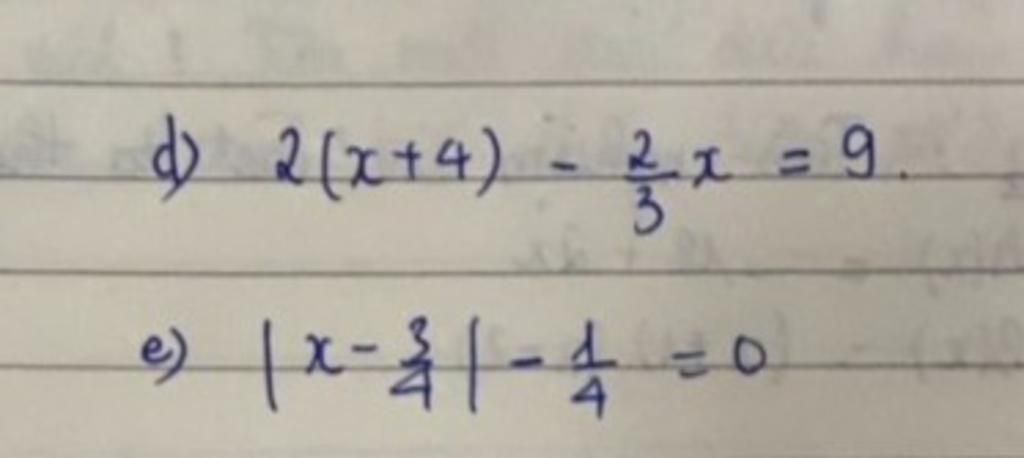 d) 2(x+4) - 2/3 x = 9.
e) |x - 3/4| - 1/4 = 0